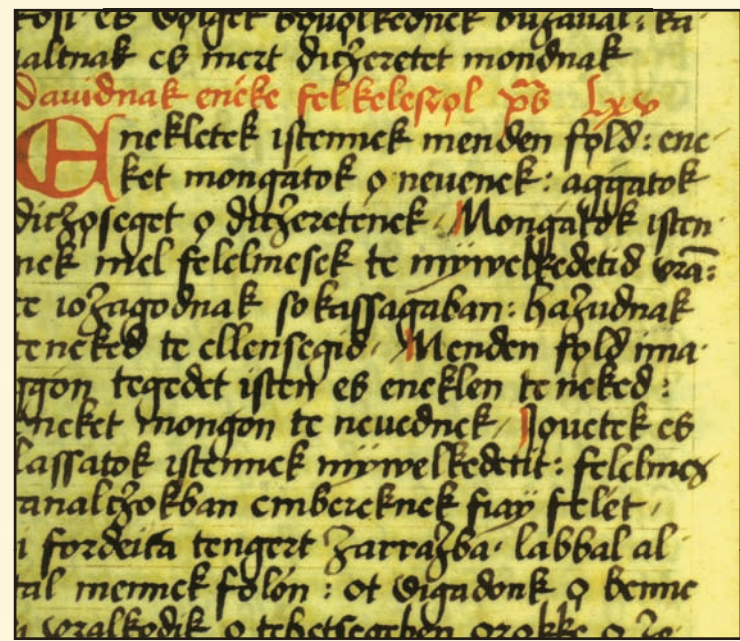 es vǫlgek bǫuǫlkednek buzaual: ka
altnak es mert dičȝeretet mondnak
Dauidnak eneke felkelesrǫl ps lxv
Enekletek istennek menden fǫld: ene
ket mongatok ǫ neuenek: aggatok
dičȝǫseget ǫ dičȝeretenek Mongatok isten
nek mel felelmesek te mywelkedetid vrā:
te ioȝagodnak sokassagaban: haȝudnak
teneked te ellensegid Menden fǫld ima
ggon tegedet isten es eneklen teneked:
eneket mongon te neuednek Iǫuetek es
lassatok istennek mywelkedetit: felelmes
tanalčȝokban embereknek fiay felet
i fordeita tengert ȝarraȝba labbal al
tal mennek folon: ot vigadonk ǫ benne
vralkodik ǫ tehetsegeben orokke ǫ